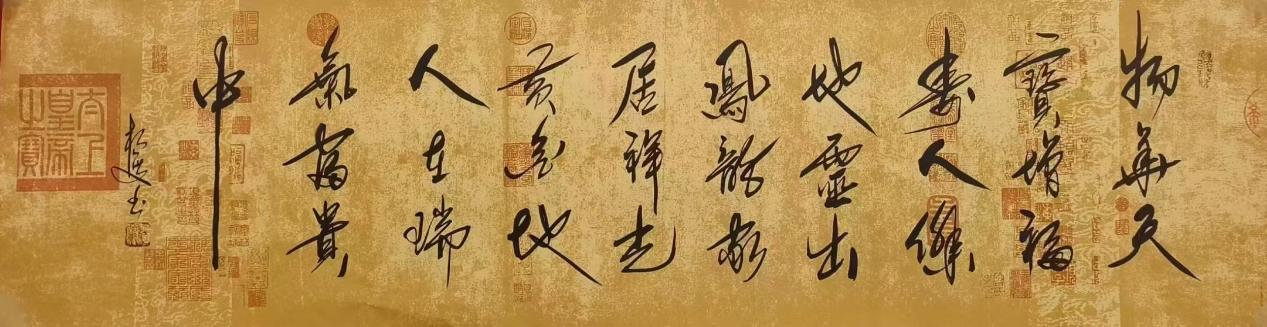 物華天
寶增福
壽人傑
地靈出
鳳龍新
居祥光
黃金地
人在瑞
氣富貴
中
太上
皇帝
之寶